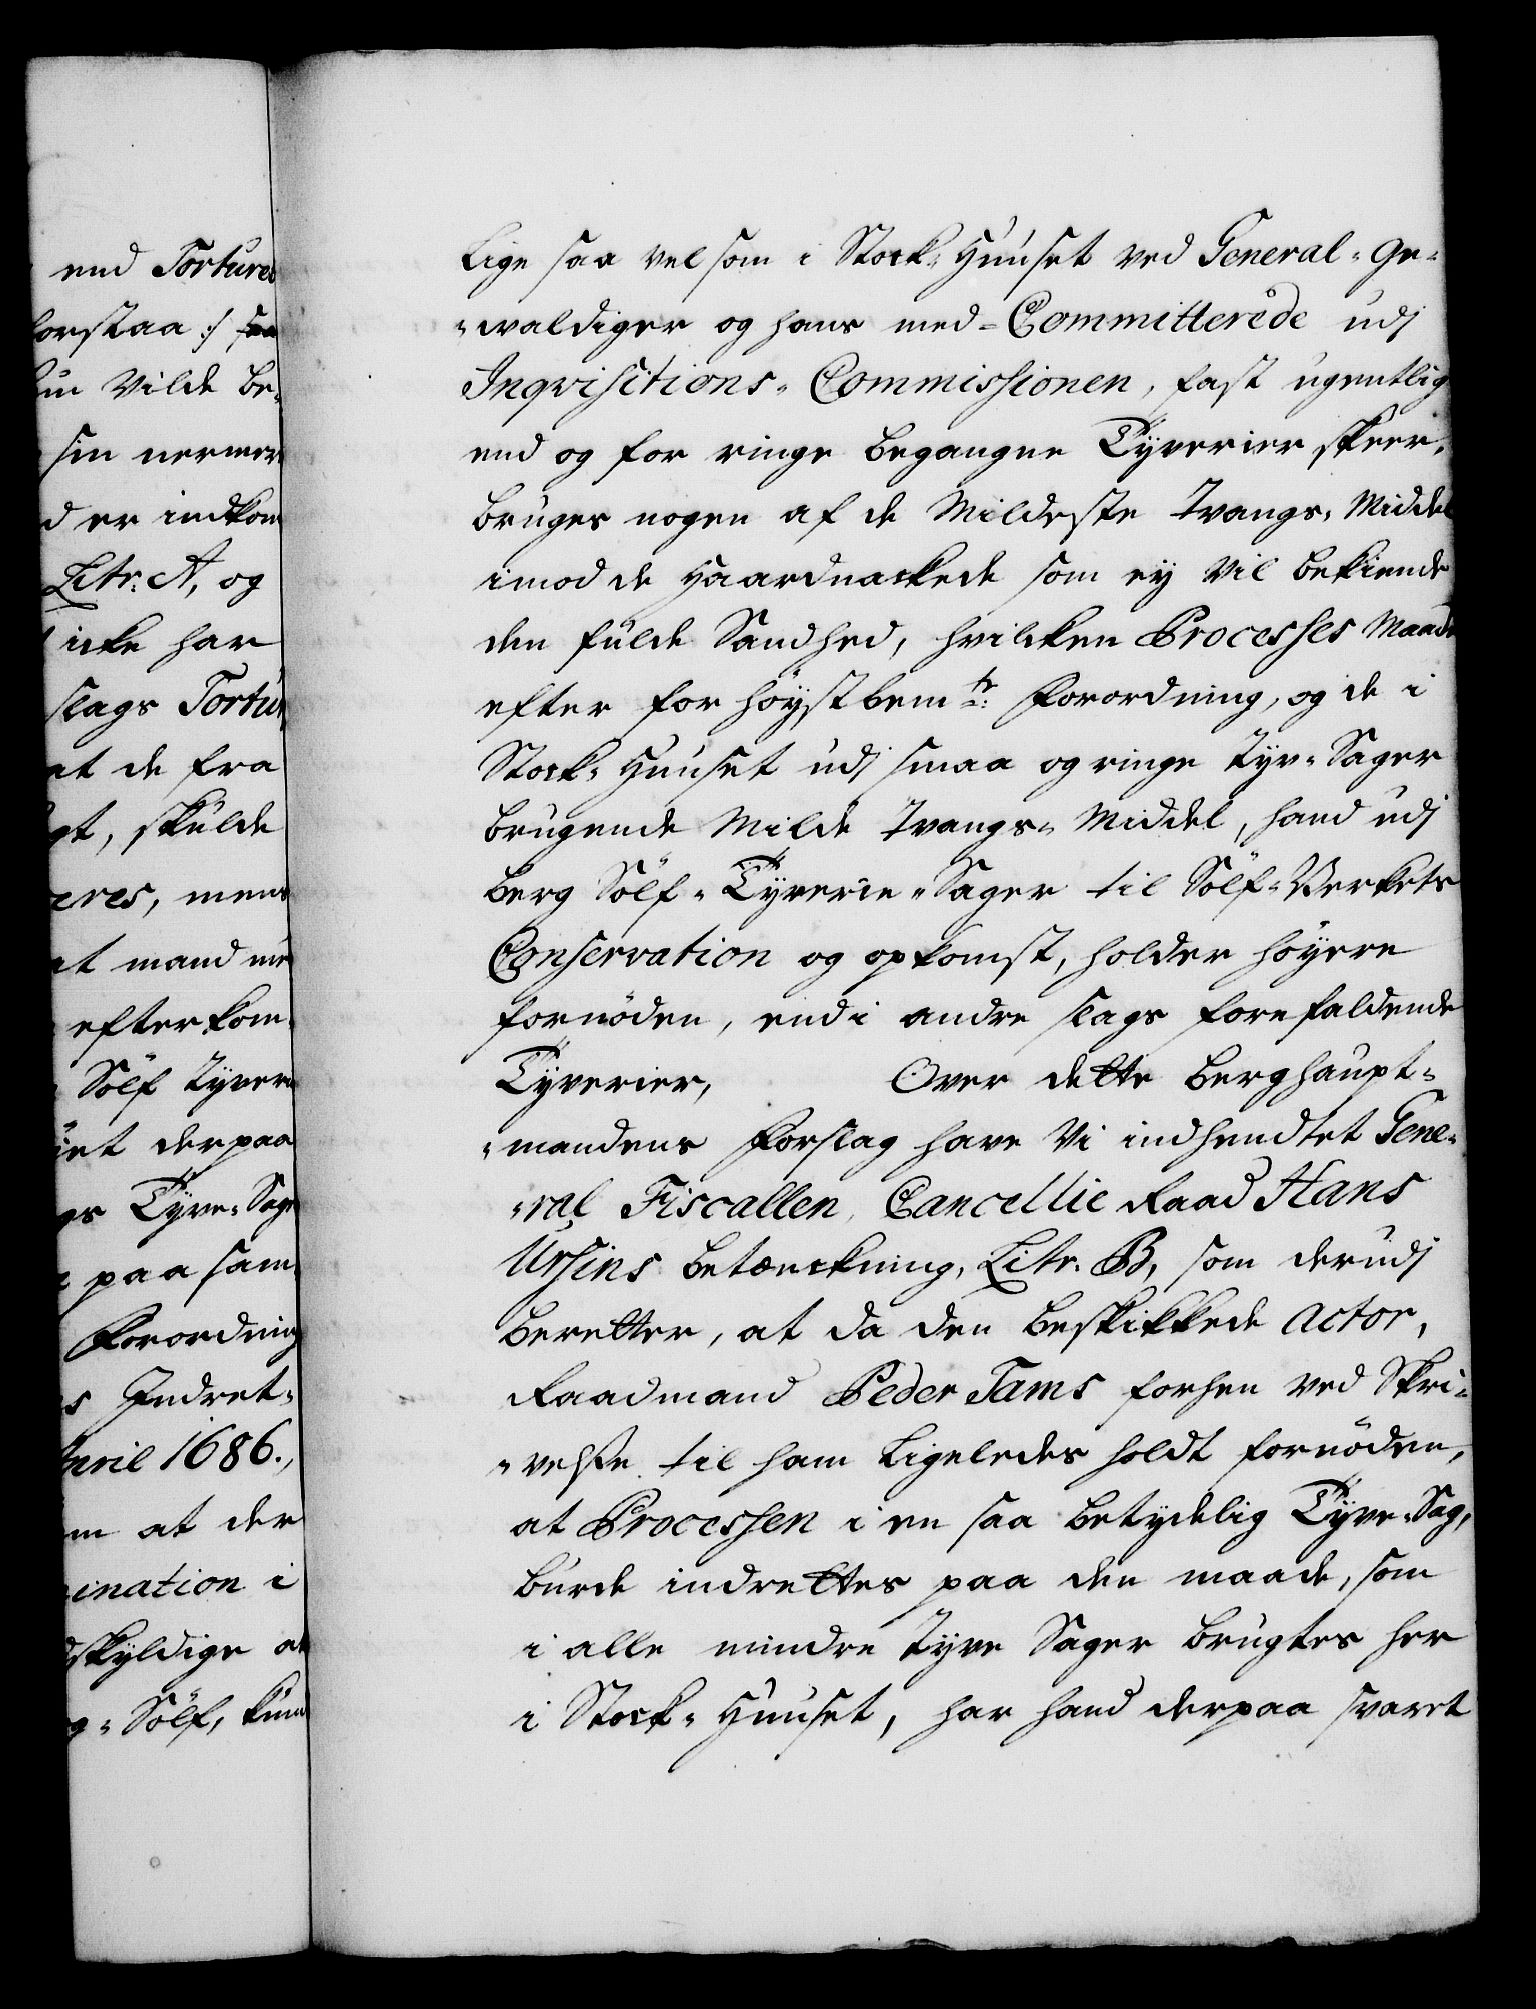 end Torturen
forstaa :/ saa
hun Vilde be-
sin nermer
d er indkom
Litr: A, og
icke har
slags Tortur,
at de fra
gt, skulde
eres, mens
at mand
efterkom-
Sölf Tyver
iet derpaa
gs Tyve-Sag
paa sam-
Forordning
s Indret-
April 1686.,
m at der
ination i
dskyldige at
g-Sölf, kun
Lige saa vel som i Stock-Huuset ved General-Ge-
-waldiger og hans med-Committerede udj
Inqvisitions-Commissionen, fast ugentlig
end og for ringe begangne Tyverier skeer,
bruges nogen af de Mildeste Tvangs-Middel
imod de Haardnackede som ey Vil bekiende
den fulde Sandhed, hvilcken Processes Maade
efter for höystbemte: Forordning, og de i
Stock-Huuset udj smaa og ringe Tyv-Sager
brugende Milde Tvangs-Middel, hand udj
berg Sölf-Tyverie-Sager til Sölf-Verkets
Conservation og opkomst, holder höyere
fornöden, end i andre slags forefaldende
Tyverier, Over dette Berghaupt-
-mandens Forslag have Vi indhendtet Gene-
-ral Fiscallen, Cancellie Raad Hans
Ursins betænckning, Litr. B, som derudj
beretter, at da den beskikkede Actor,
Raadmand Peder Tams forhen ved Skri-
-velse til ham Ligeledes holdt fornöden,
at Processen i en saa betydelig Tyve-Sag,
burde indrettes paa den maade, som
i alle mindre Tyve Sager brugtes her
i Stock-Huuset, har hand derpaa svaret